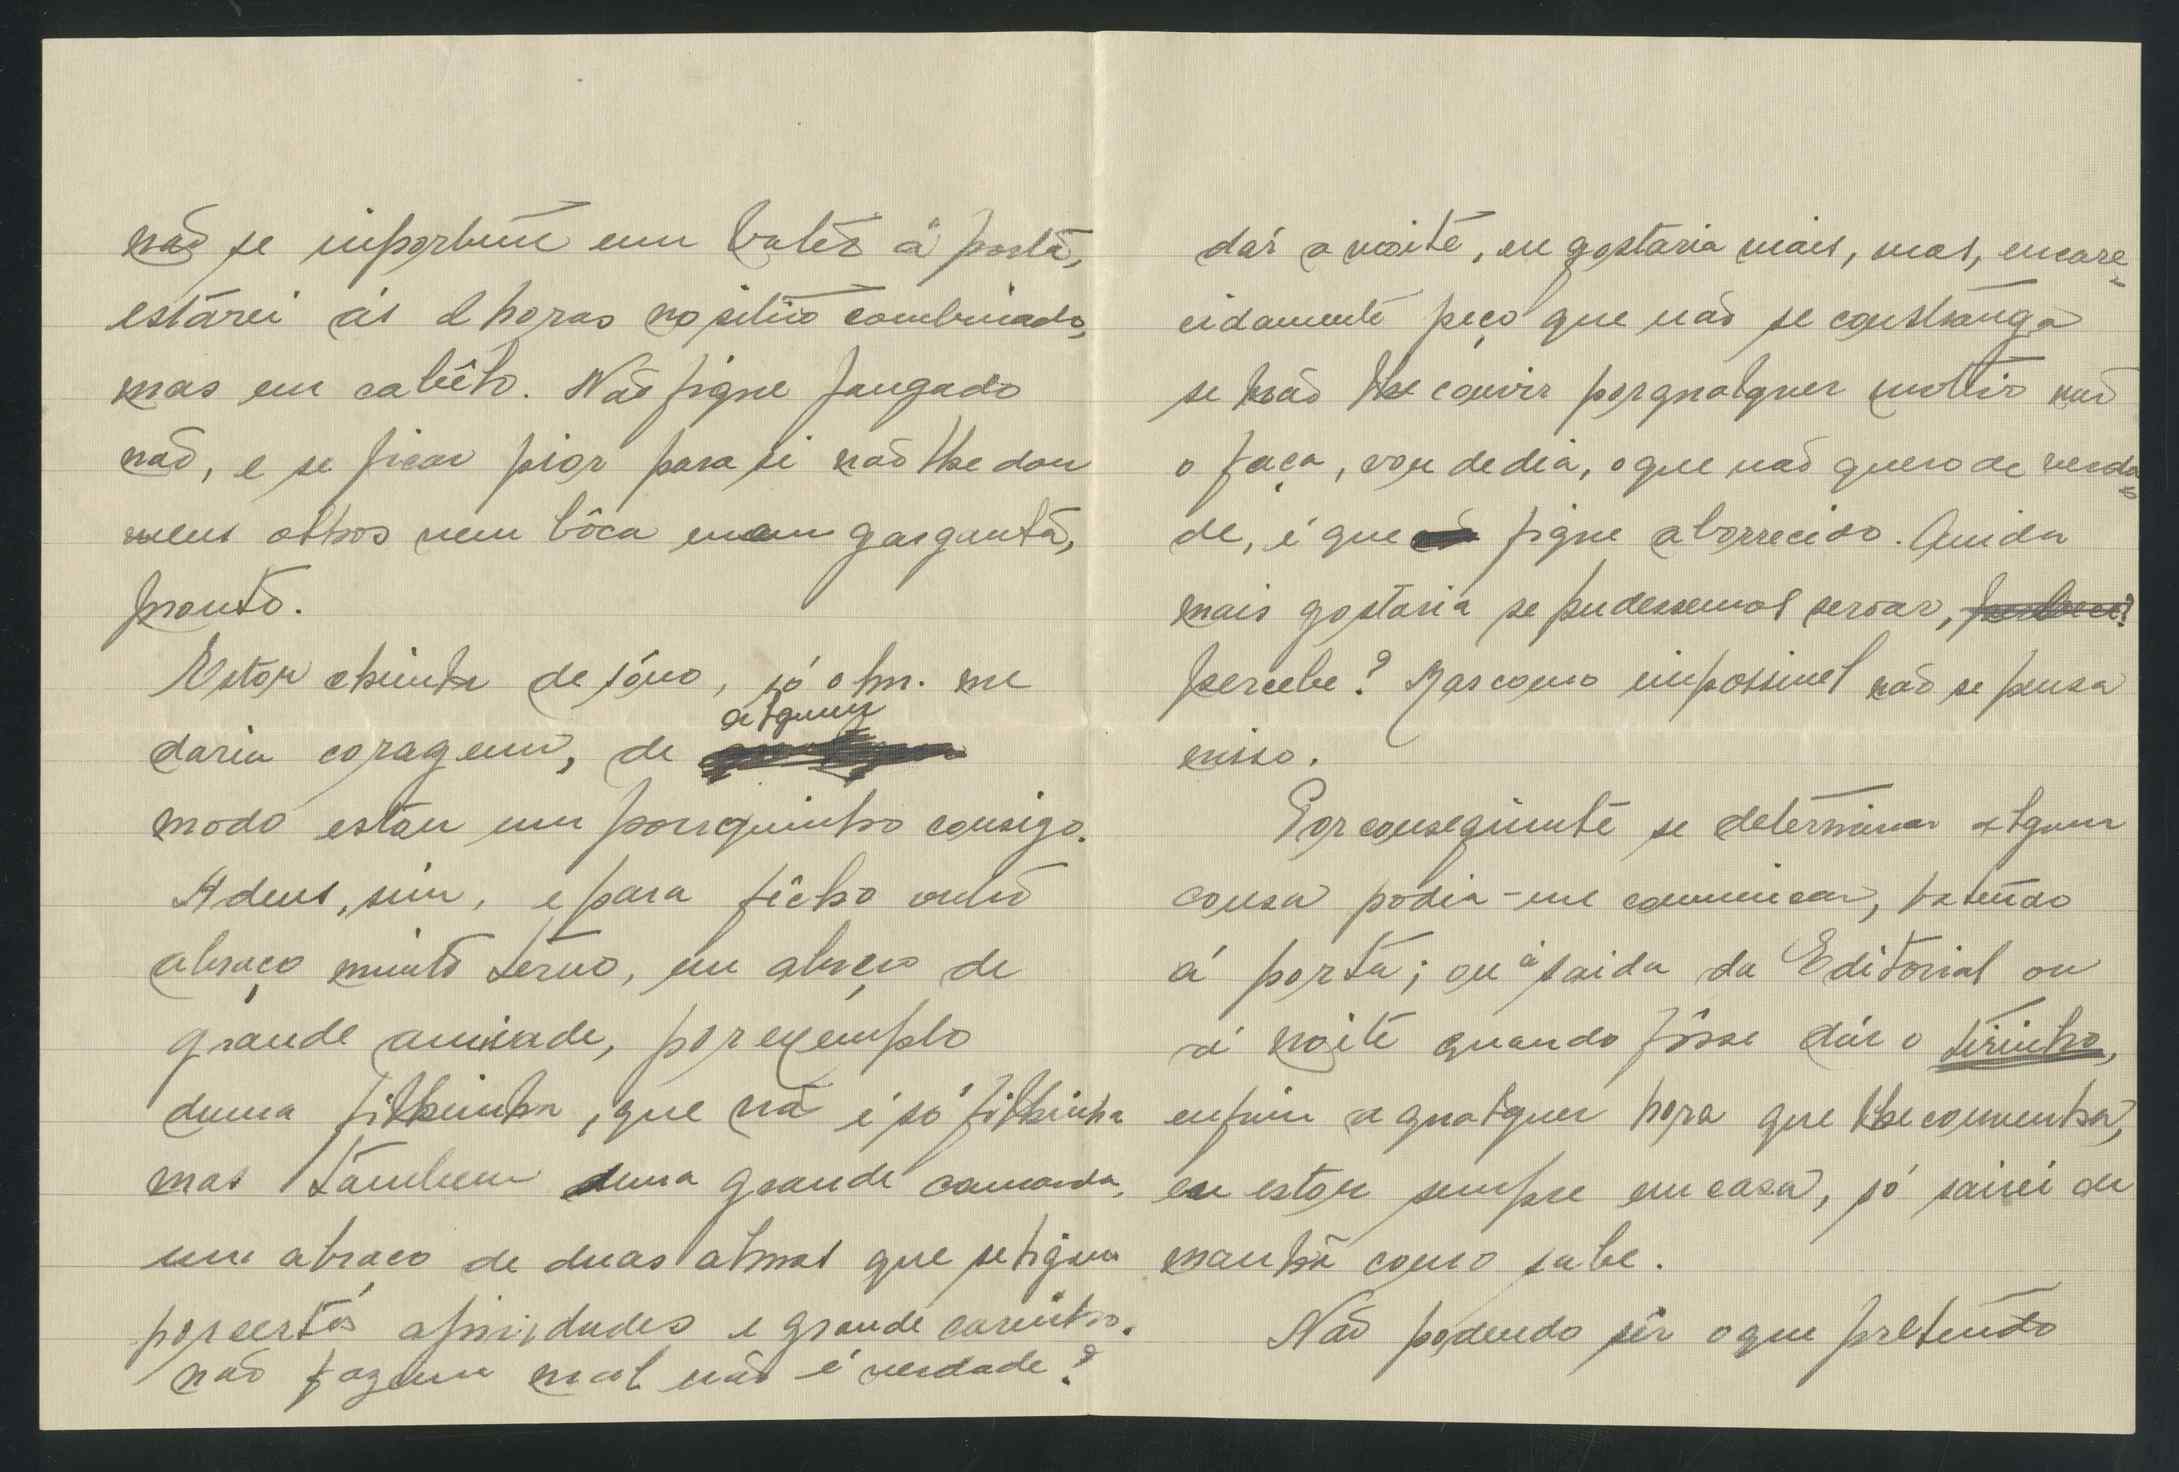 não se importune em batêr á porta,
estarei ás 2 horas no sitio combinado,
mas em cabêlo. Não fique zangado
não, e se ficar pior para si não lhe dou
meus olhos nem bôca nem garganta,
pronto.
Estou cheinha de sôno, só o hr. me
daria coragem, de algum
modo estar um pouquinho consigo.
Adeus, sim, e para fêcho outro
abraço muito terno, um abraço de
grande amisade, por exemplo
duma filhinha, que não é só filhinha
mas tambem duma grande camarada,
um abraço de duas almas que se ligam
por certas afinidades e grande carinho.
não fazem mal não é verdade?
dár a noite, eu gostaria mais, mas, encare-
cidamente peço que não se constranga
se não lhe convir por qualquer motivo não
o faça, vou de dia, o que não quero de verda-
de, é que fique aborrecido. Ainda
mais gostaria se pudessemos seroar,
percebe? Mas como impossivel não se pensa
nisso.
Por conseguinte se determinar alguma
cousa podia-me comunicar, batendo
á porta; ou á saida da Editorial ou
á noite quando fôsse dár o tirinho,
enfim a qualquer hora que lhe convenha,
eu estou sempre em casa, só sairei de
manhã como sabe.
Não podendo sêr o que pretendo